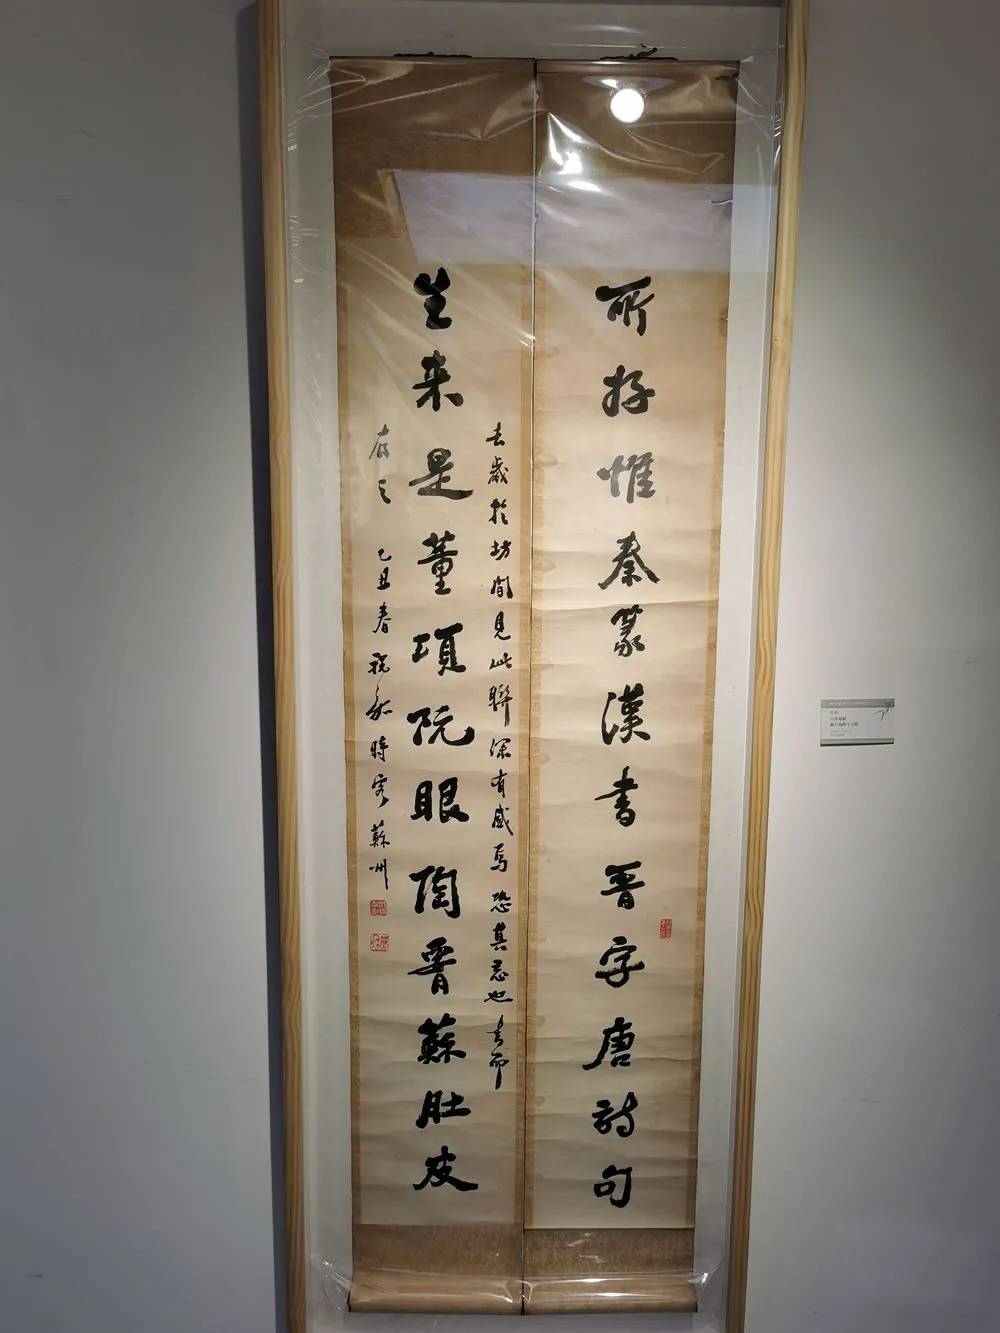 所好惟秦篆漢書晉字唐詩句
去歲於坊間見此聯深有感焉恐其忘也書而
生來是董項阮眼陶胃蘇肚皮
存之 乙丑春 時客蘇州